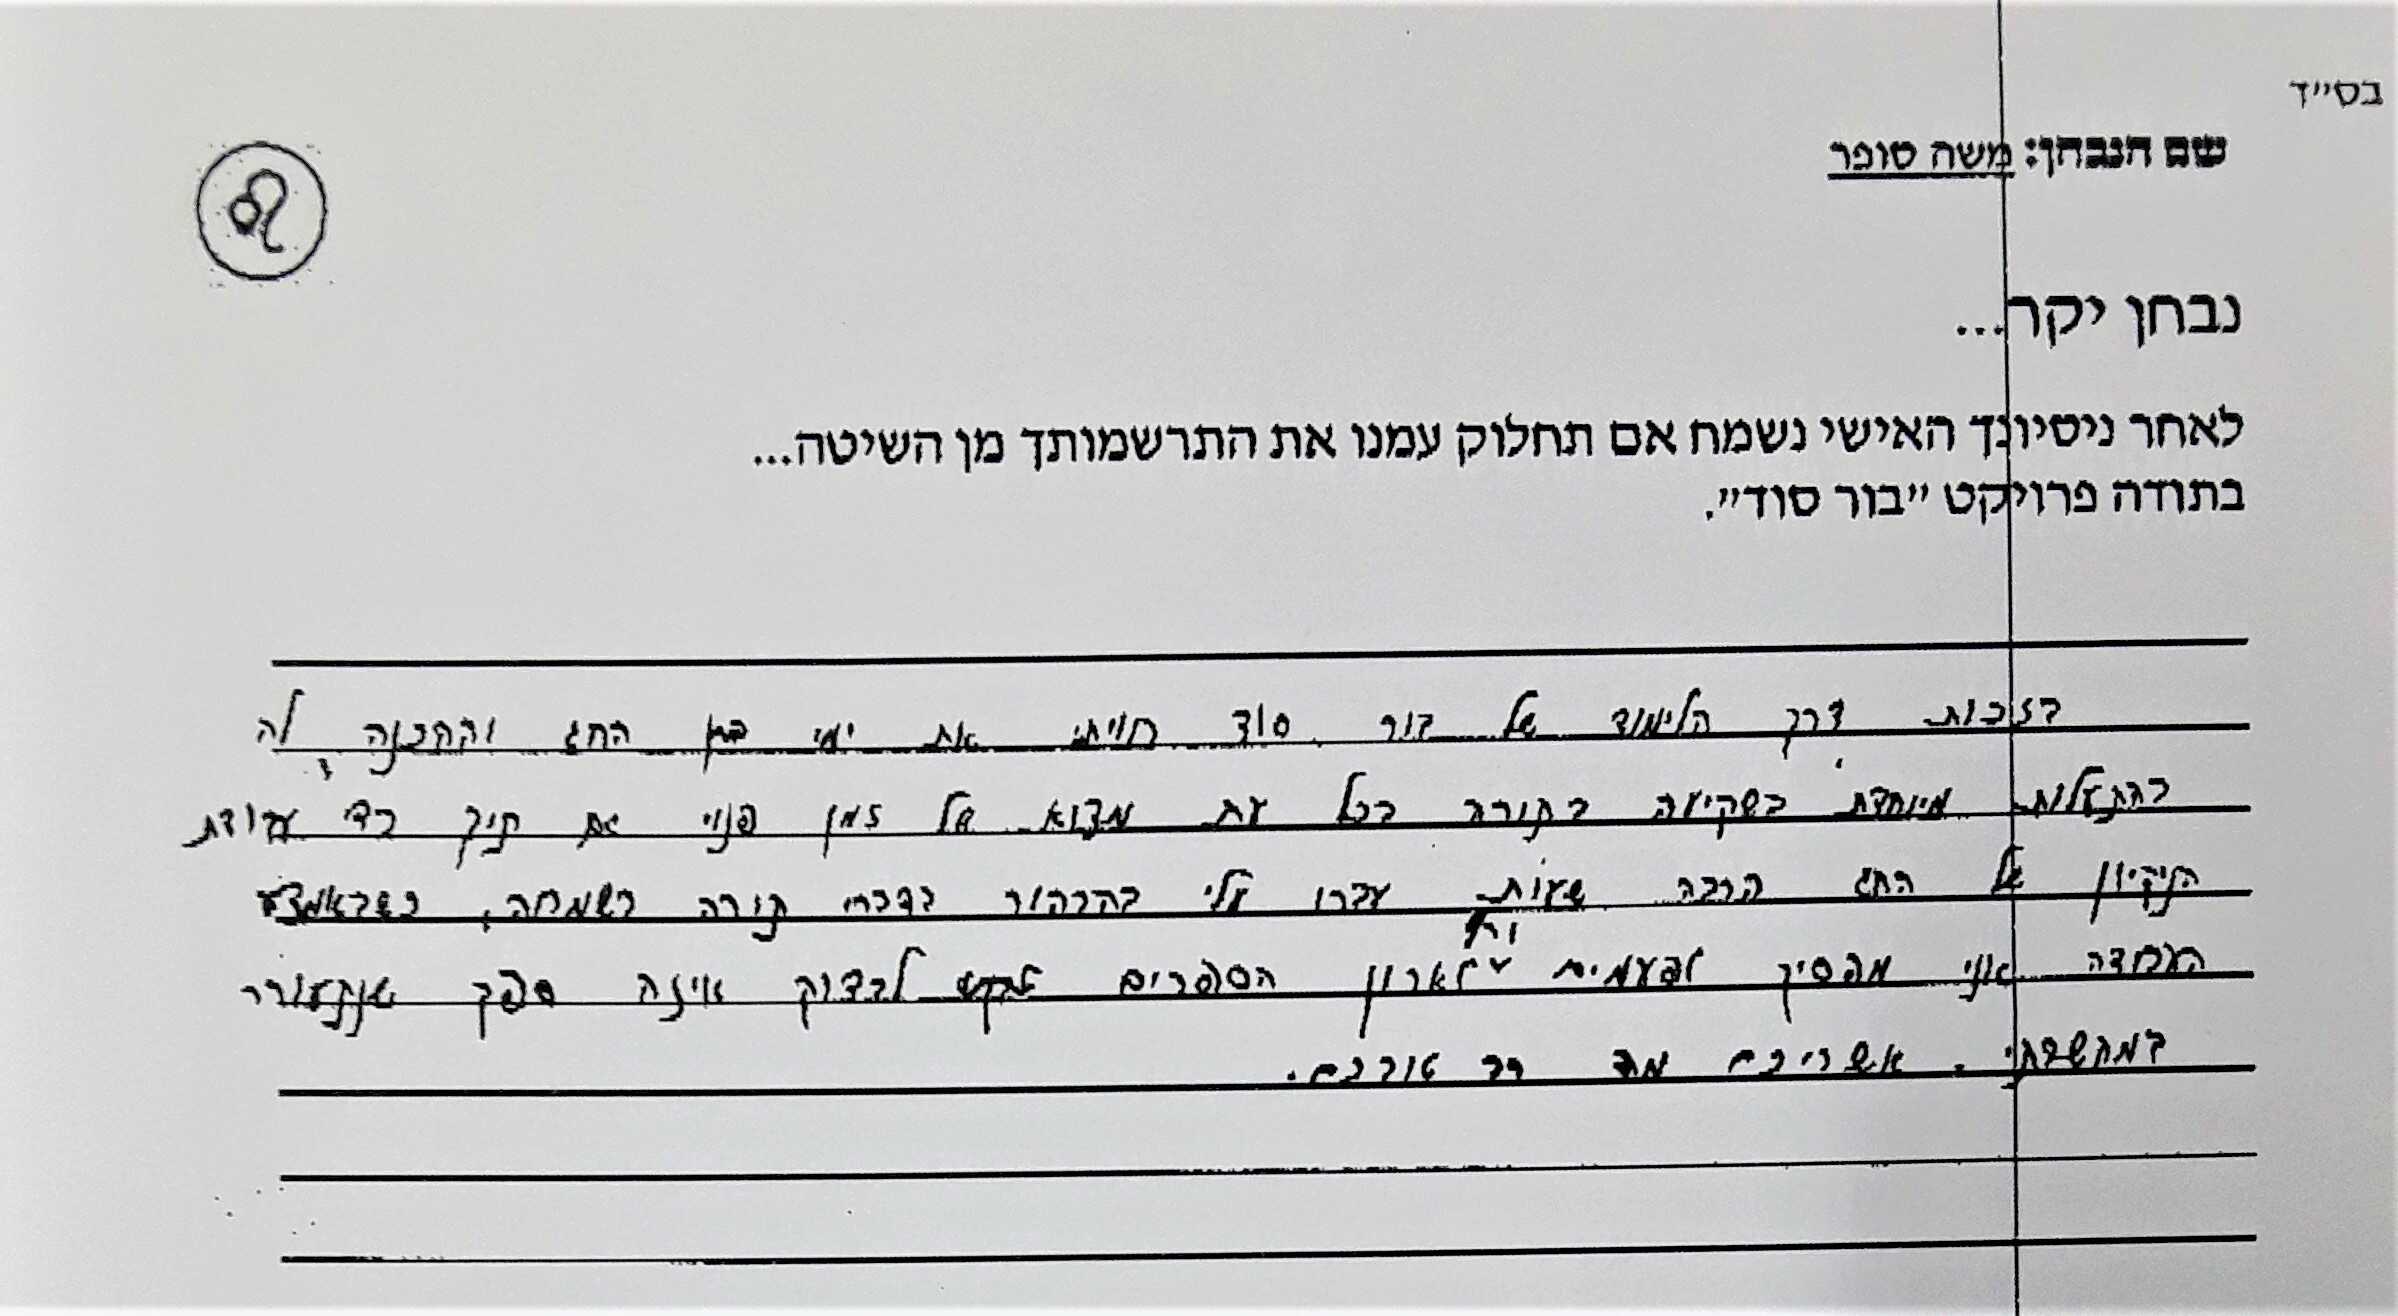 בס״ד
שם הנבחן: משה סופר
נבחן יקר...
לאחר ניסיונך האישי נשמח אם תחלוק עמנו את התרשמותך מן השיטה...
בתודה פרויקט ״בור סוד״.
בזכות דרך הלימוד של בור סוד חויתי את ימי החג וההכנה לה
בהתעלות מיוחדת בשקיעה בתורה בכל עת מצוא של זמן פנוי גם תוך כדי עבודת
הניקיון של החג הרבה שעות עברו עלי בהרהור בדברי תורה בשמחה, כשבאמצע
העבודה אני מפסיק לפעמים לארון הספרים לבדוק איזה ספק שנתעורר
במחשבתי. אשריכם מה רב טובכם.